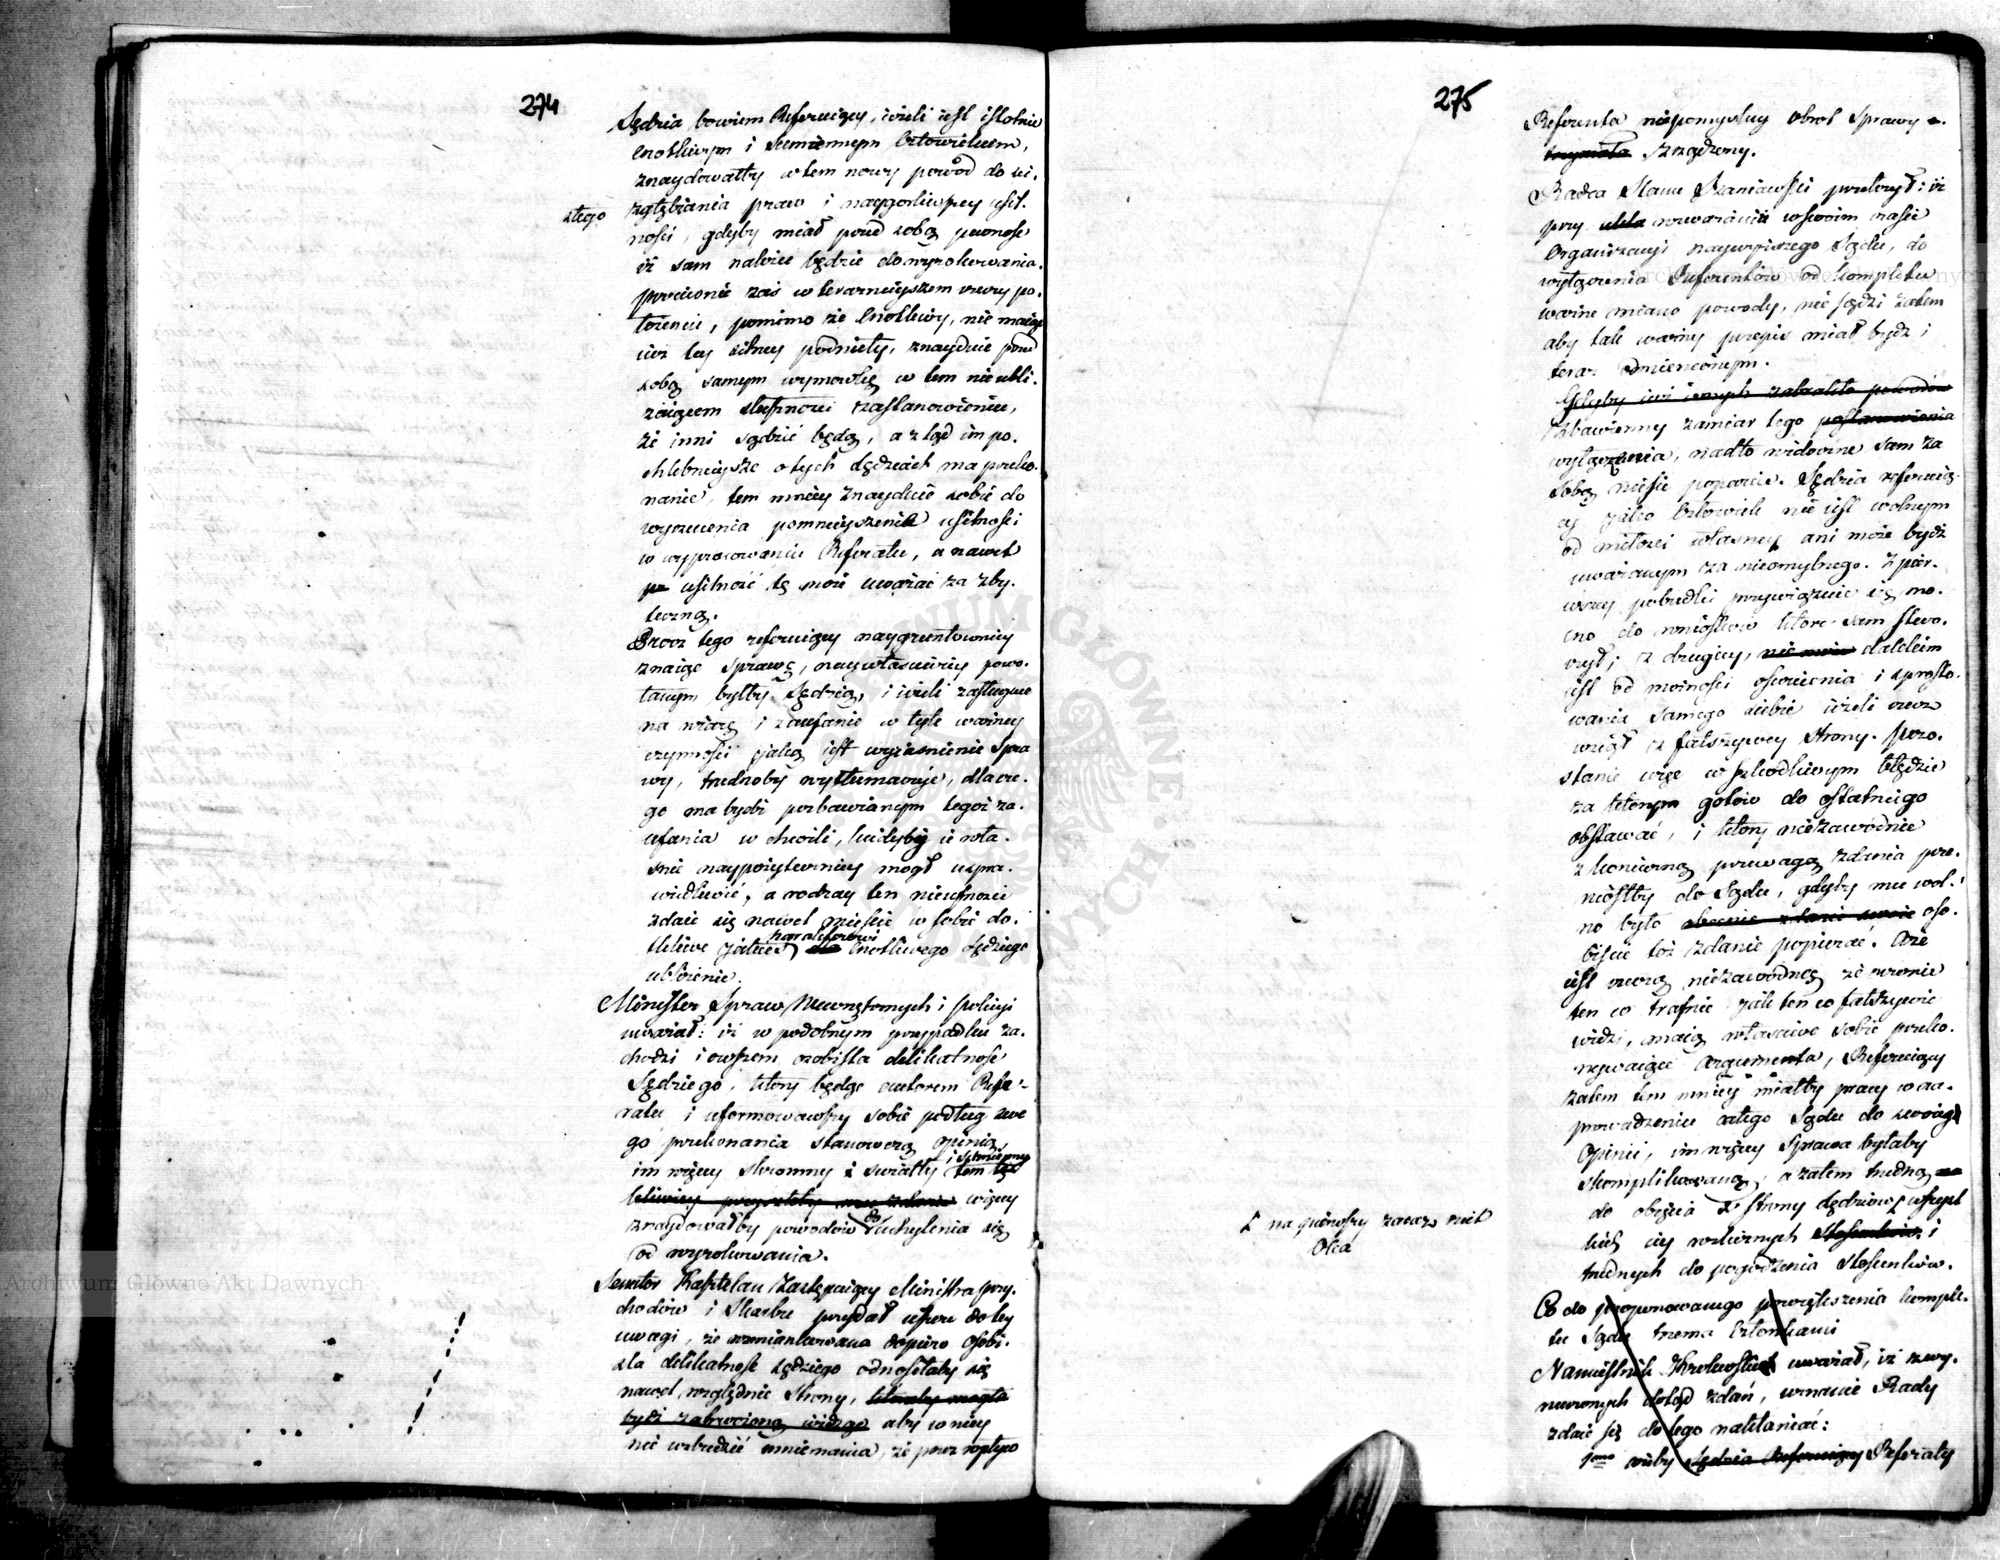 274
Sędzia bowiem Referuiący, ieżeli iest istotnie
Cnotliwym i Sumiennym Człowiekiem,
znaydowałby w tem nowy powód do
złego zgłębiania praw i naygorliwszey usil.
ności, gdyby miał przed sobą pewność
iż sam należeć będzie do wyrokowania.
przeciwnie zaś w teraźnieyszem rzeczy po.
łożeniu, pomimo że Cnotliwy, nie maiąc
iuż tey silney podniety, znayduie przed
sobą samym wymówkę w tem nieubli.
żaiącem słuszności zastanowieniu,
że inni sądzić będą, a ztąd im po.
chlebnieysze o tych Sędziach ma przeko.
nanie, tem mniey znayduie sobie do
wyrzucenia pomnieyszenia usilności
w wypracowaniu Referatu, a nawet
usilność tę może uważać za zby.
teczną.
Prócz tego referuiący naygruntowniey
znaiąc Sprawę, naywłaściwiey powo.
łanym byłby Sędzią, i ieżeli zasługuie
na wiarę i zaufanie w tyle ważney
czynności jaką iest wyiaśnienie Spra
wy, trudnoby wytłumaczyć, dlacze.
go ma bydź pozbawianym tegoż za.
ufania w chwili, kiedyby ie wła.
śnie naypożyteczniey mógł uspra.
wiedliwić, a rodzay ten nieufności
zdaie się nawet mieścić w sobie do.
tkliwe jakieś charakterowi Cnotliwego Sędziego
ubliżenie.
Minister Spraw Wewnętrznych i Policyi
uważał: iż w podobnym przypadku za.
chodzi i owszem osobista delikatność
Sędziego, który będąc autorem Refe.
ratu i uformowawszy sobie podług swe
go przekonania stanowczą opinią,
im więcey skromny i światły i sumienny tem
więcey
znaydowałby powodów do uchylenia się
od wyrokowania.
Senator Kasztelan Zastępuiący Ministra przy.
chodów i Skarbu przydał ieszcze do tey
uwagi, że wzmiankowana dopiero osobi.
sta delikatność sędziego odnosiłaby się
nawet względnie Strony, któraby mogła
bydź zakwocioną widząc aby w niey
nie wzbudzić mniemania, że przez wpływ
275
Referenta niepomyślny obrot Sprawy
zrządzony.
Radca Stanu Szaniawski przełożył: iż
przy rozważaniu w swoim czasie
Organizacyi naywyższego Sądu, do
wyłączenia Referentów od kompletu
ważne miano powody, nie sądzi zatem
aby tak ważny przepis miał bydź i
teraz odmienionym.
Gdyby iuż innych zabrakło powodów
Zbawienny zamiar tego postanowienia
wyłączenia, nadto widocznie sam za
sobą niesie poparcie. Sędzia referuią
cy jako Człowiek nie iest wolnym
od miłości własney ani może bydź
uważanym za nieomylnego. Z pier.
wszey pobudki przywiązuie się mo.
cno do wniosków które sam stwo.
rzył; z drugiey, dalekim
iest od możności ocenienia i sprosto.
wania samego siebie ieżeli rzecz
wziął z fałszywey strony. pozo.
stanie więc w szkodliwym błędzie
za którym gotów do ostatniego
obstawać, i który niezawodnie
z konieczną przewagą zdania prze.
niósłby do Sądu, gdyby mu wol.
no było obecnie zdanie swoie oso.
biście toż zdanie popierać. Że
iest rzeczą niezawodną że równie
ten co trafnie jak ten co fałszywie
widzi, maią właściwe sobie przeko.
nywaiące argumenta, Referuiący
zatem tem mniey miałby pracy w na.
prowadzeniu całego Sądu do swoiey
Opinii, im więcey Sprawa byłaby
skomplikowaną, a zatem trudną
do obięcia ze strony sędziów, wszyst
kich iey rozlicznych i
trudnych do pogodzenia stosunków.
I na pierwszy zaraz rzut
Oka
Co do proponowanego powiększenia komple.
tu Sądu trzema Członkami
Namiestnik Królewski uważał, iż z wy.
nurzonych dotąd zdań, wnoszenie Rady
zdaie się do tego nakłaniać:
1mo ażeby Sędzia Referuiący Referaty